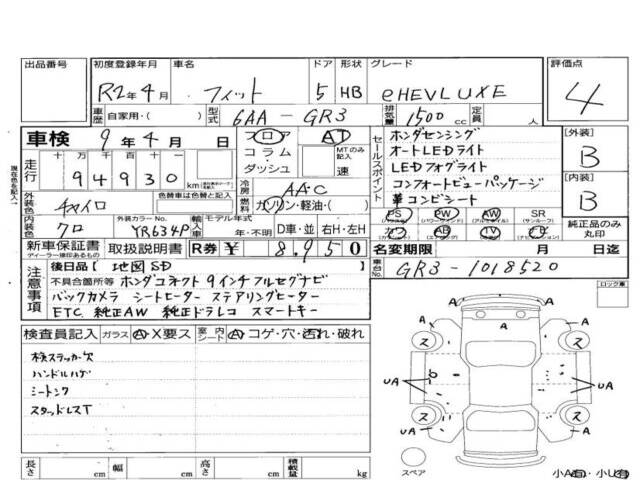 出品番号 初度登録年月 車名 ドア 形状 グレード 評価点
R2年4月 フィット 5 HB eHEV LUXE 4
車歴 自家用・( ) 型式 6AA-GR3 排気量 1500cc 定員 人
車検 9年4月 日 フロア コラム・ダッシュ AT MTのみ記入 速
走行 十万 万 千 百 十 94930 km
セールスポイント
ホンダセンシング
オートLEDライト
LEDフォグライト
コンフォートビューパッケージ
革コンビシート
[外装] B
[内装] B
現在色を記入
外装色 チャイロ 色替車は色替と記入 冷房 AAC
燃料 ガソリン・軽油・( )
内装色 クロ 外装カラーNo. YR634P 輸入車 モデル年式 年・不明 D車・並 右H・左H
PS (パワステ) PW (パワーウインド) AW (アルミホイル) SR (サンルーフ)
カワ AB TV ナビ
純正品のみ丸印
新車保証書 ディーラー捺印あるもの 取扱説明書 R券 ¥ 8,950
名変期限 月 日迄
車台No. GR3-1018520
注意事項
後日品[ 地図SD
不具合箇所等 ホンダコネクト 9インチフルセグナビ
バックカメラ シートヒーター ステアリングヒーター
ETC 純正AW 純正ドラレコ スマートキー
ロック車
検査員記入 ガラス A・X要ス 室内 シート A コゲ・穴・汚れ・破れ
ハンドルハゲ
スタッドレスT
A A A
ス ス
UA UA
A A
ス ス
A
スペア
長さ cm 幅 cm 高さ cm 積載量 kg
小A有 小U有